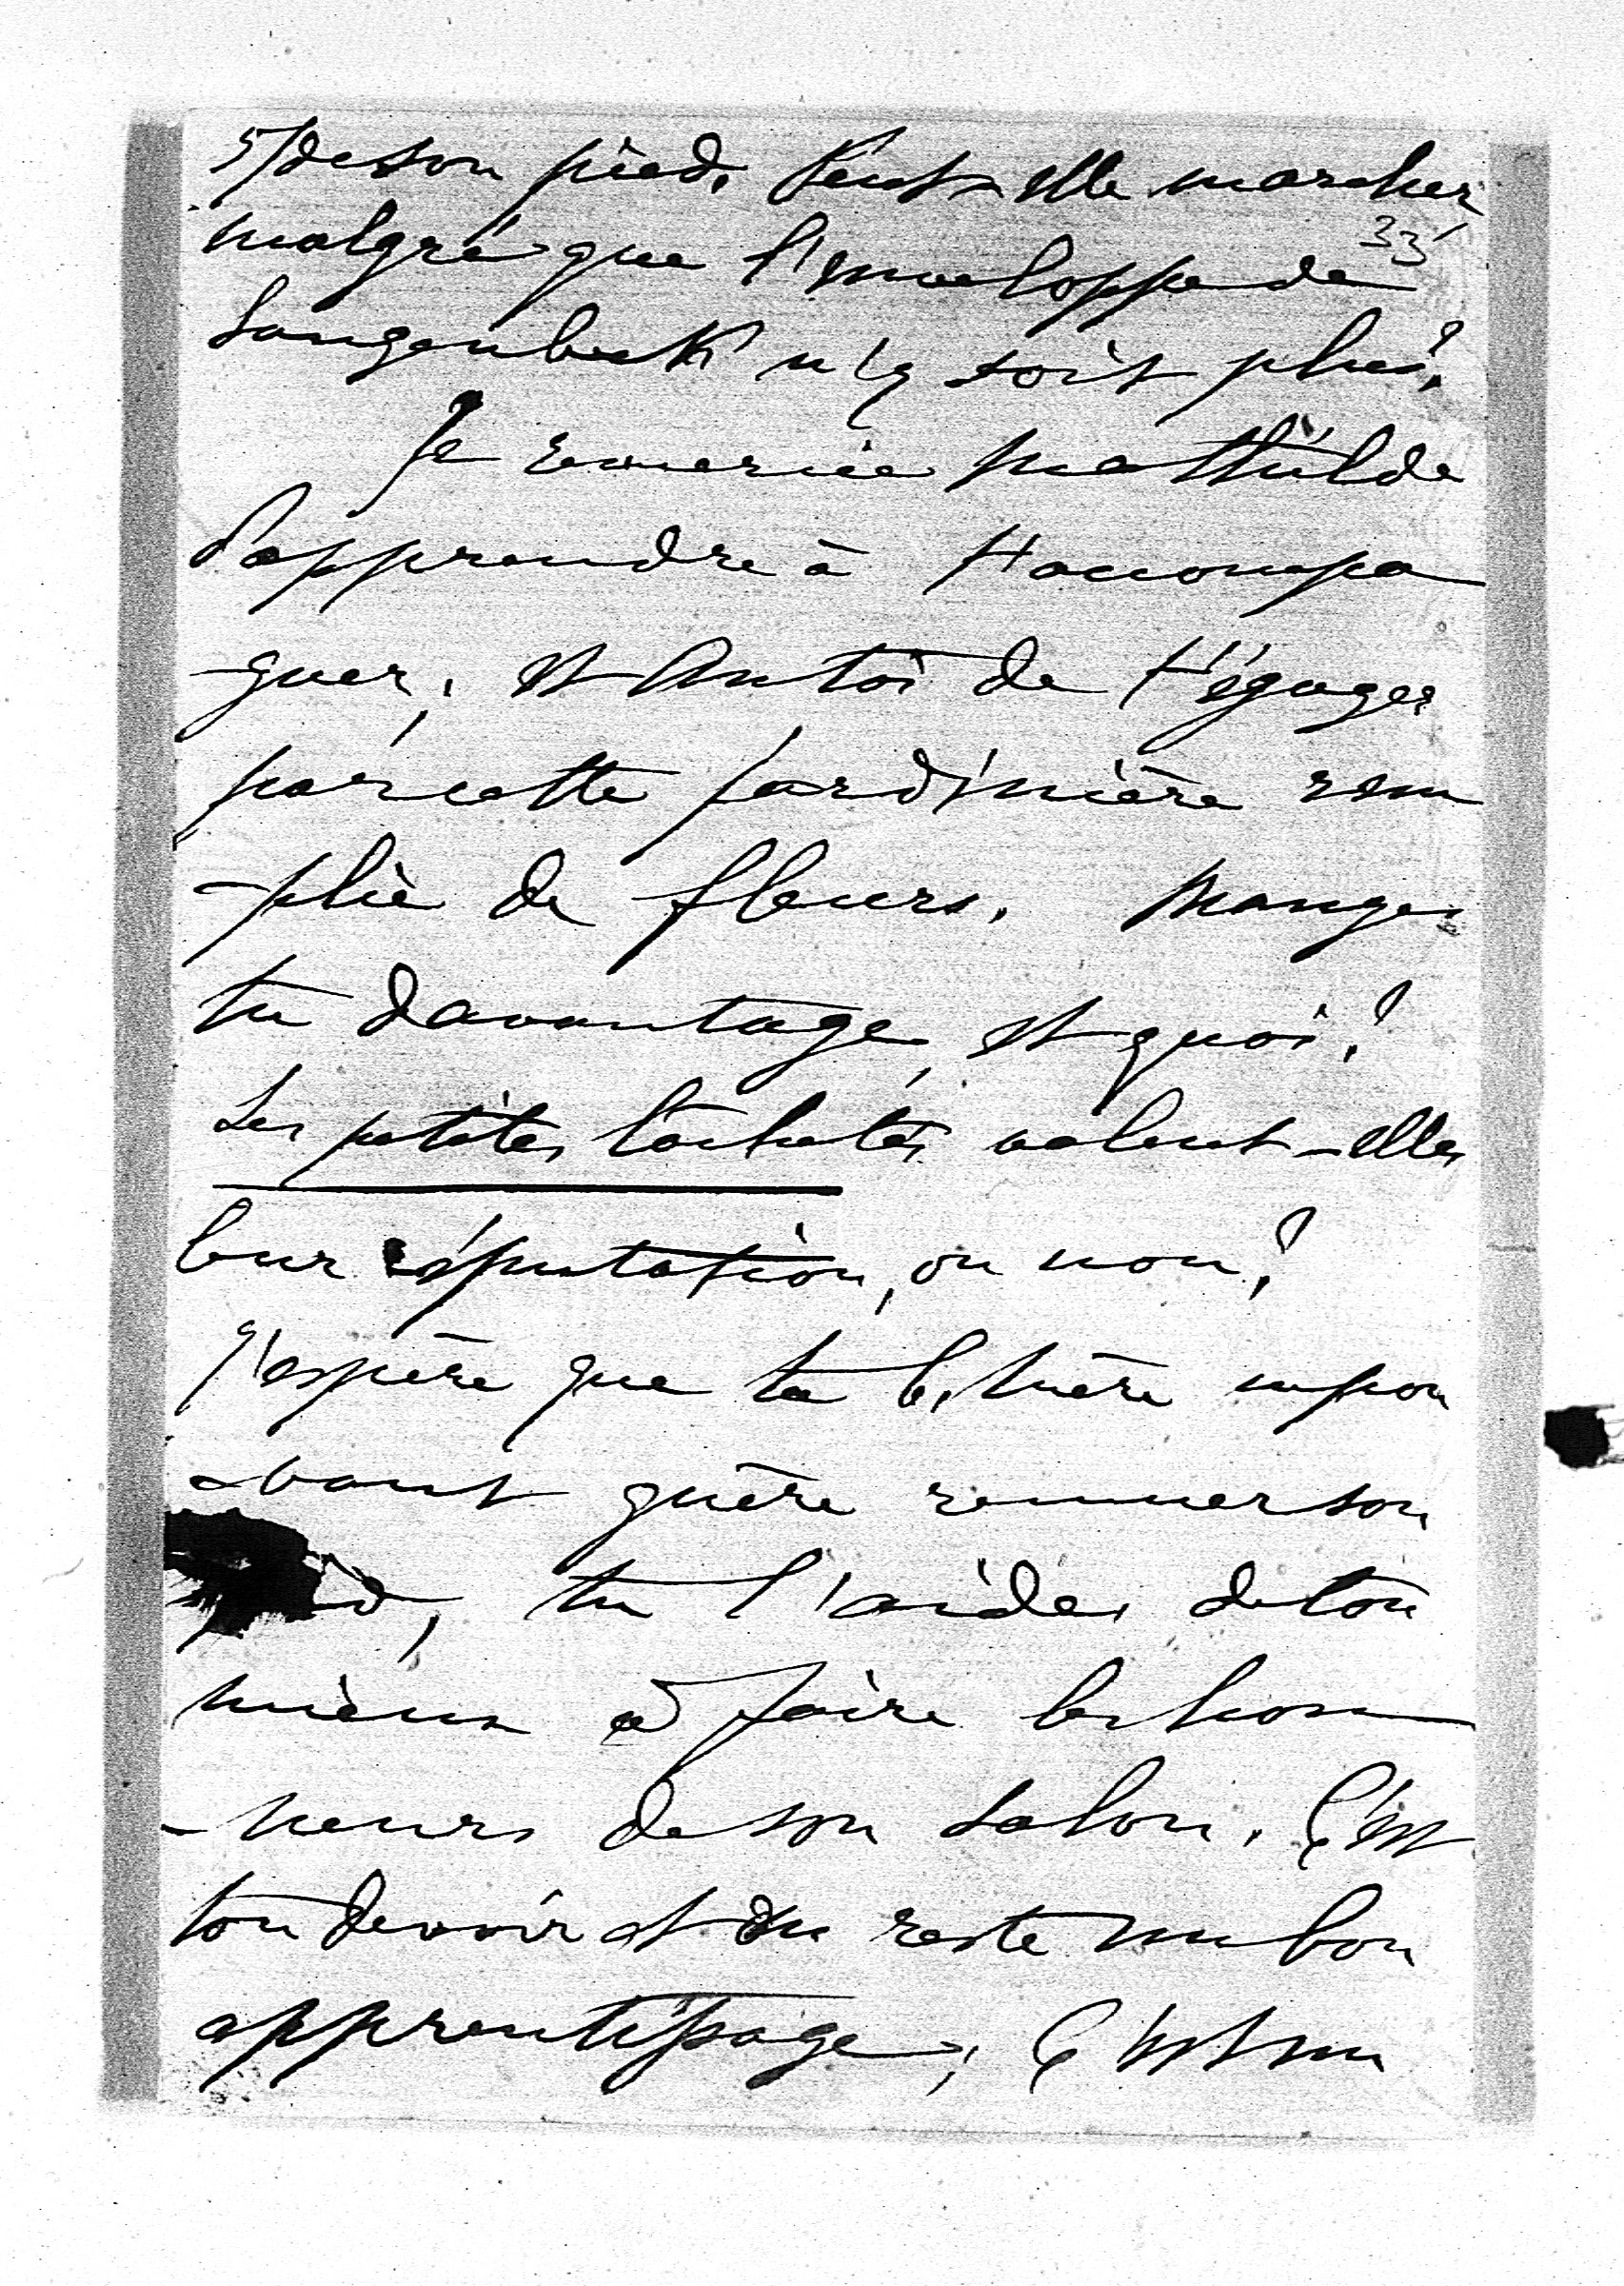 5/ de son pied. Peut-elle marcher
33
malgré que l'enveloppe de
Langenbeck n'y soit plus?
Je remercie Mathilde
d'apprendre à t'accompa
-gner, et Antoi de t'égayer
par cette jardinière rem
-plie de fleurs. Manges
tu davantage, et quoi?
Les petites valent-elles
leur réputation, ou non?
J'espère que ta b. mère ne pou
-vant guère remuer son
pied, tu l'aides de ton
mieux à faire les hon
-neurs de son salon. C'est
ton devoir et du reste un bon
apprentissage; C'est un